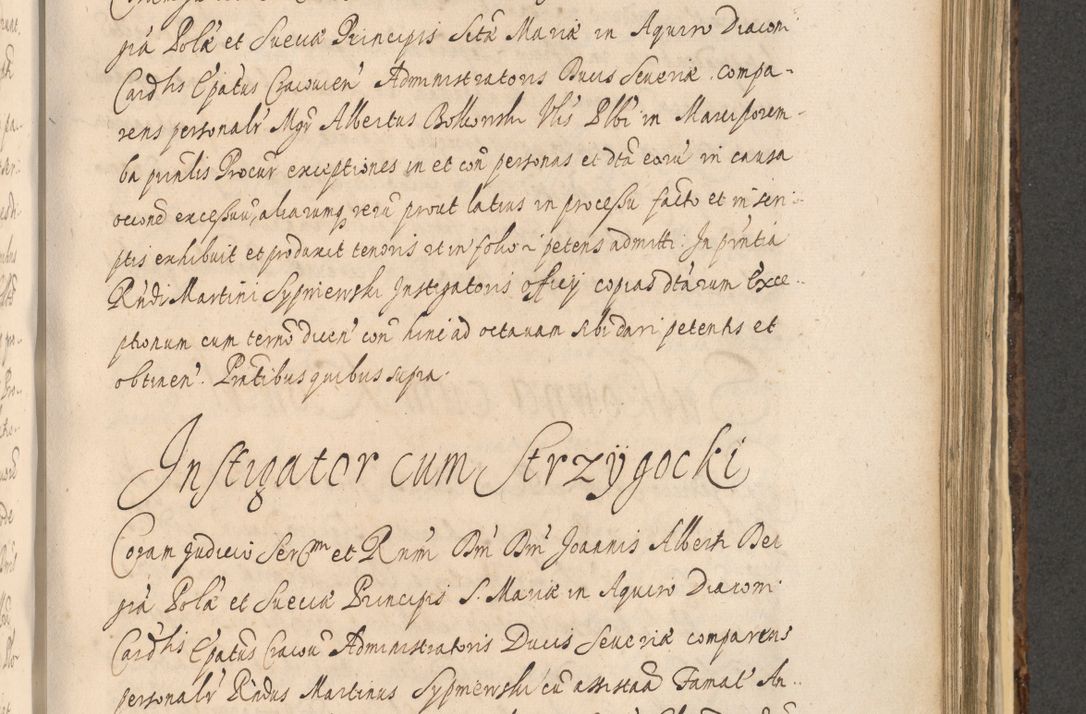 giâ Polæ et Sueciæ Principis Sctæ Mariæ in Aquiro Diacom
Cardlis Epatus Cracouien' Administratoris Ducis Seueriæ compa-
rens personalr Mgr Albertus Bolkonski Vlis Plbi in Marciporem-
ba prinlis Procur exceptiones in et con personas et dta eoru in causa
occone excessuu, aliarumq reru prout latius in processu facto et in scri-
ptis exhibuit et produxit tenoris ut in folio petens admitti. In prntia
Rndi Martini Sypniewski Instigatoris officy copias dtarum Exce-
ptionum cum termo dicen' con hinc ad octauam sibi dari petentis et
obtinen'. Prntibus quibus supra.
Instigator cum Strzÿgocki
Coram Judicio Sermi et Rnmi Dni Dni Joannis Alberti Re
giâ Polæ et Sueciæ Principis S. Mariæ in Aquiro Diacom
Cardlis Epatus Cracou Administratoris Ducis Seueriæ comparens
personalr Rndus Martinus Sypniewski cu assistaa Famat' An-